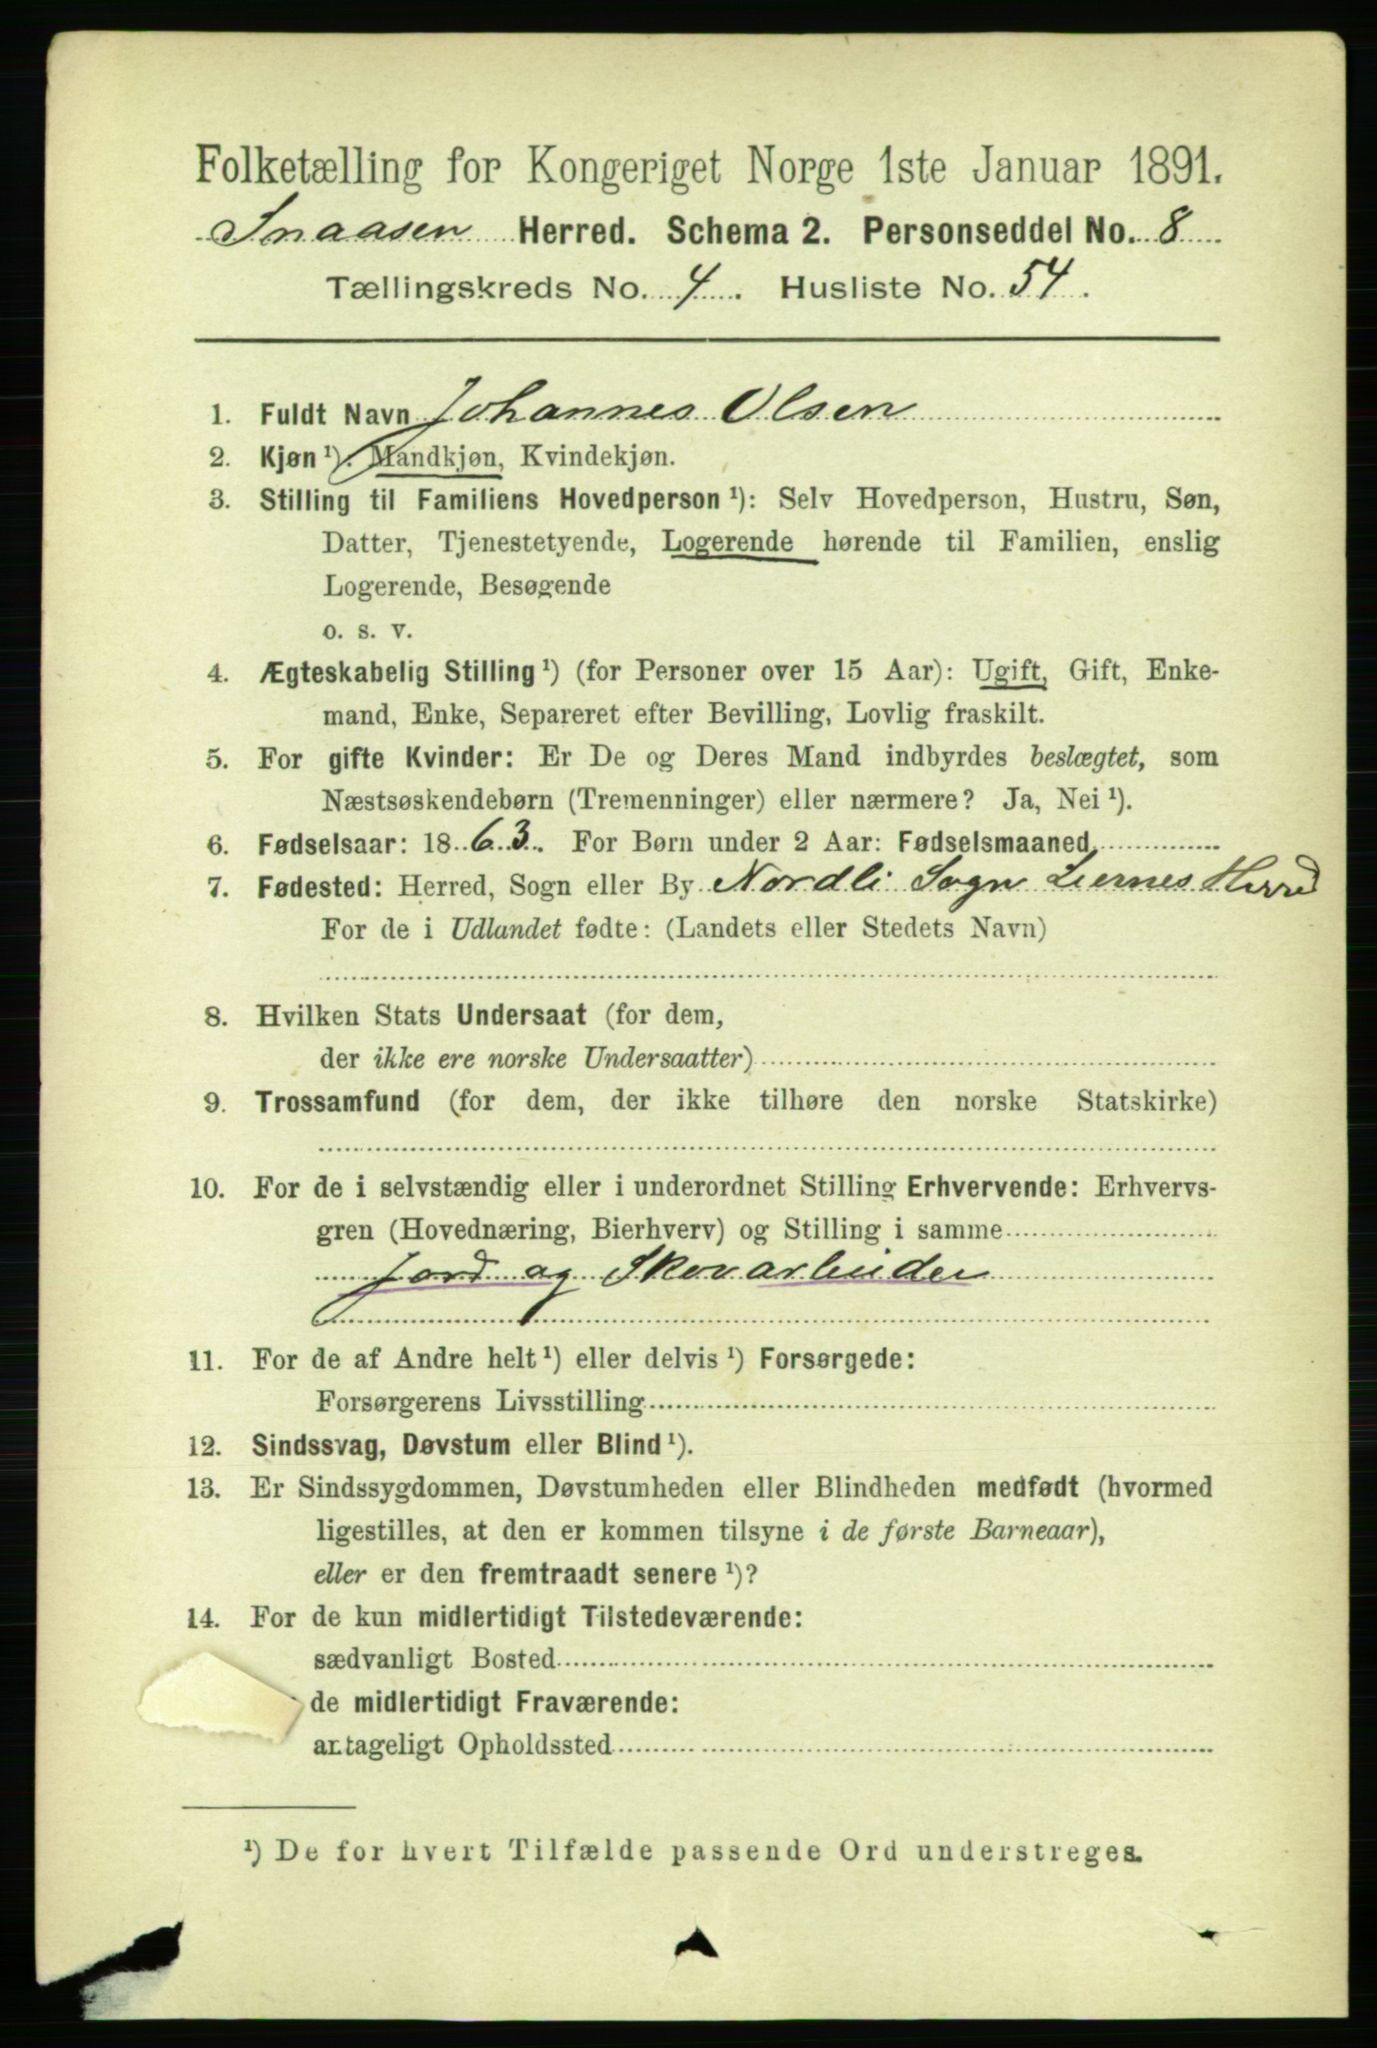 Folketælling for Kongeriget Norge 1ste Januar 1891.
Snaasen Herred. Schema 2. Personseddel No. 8
Tællingskreds No. 4. Husliste No. 54.
1. Fuldt Navn Johannes Olsen
2. Kjøn¹). Mandkjøn, Kvindekjøn.
3. Stilling til Familiens Hovedperson¹): Selv Hovedperson, Hustru, Søn,
Datter, Tjenestetyende, Logerende hørende til Familien, enslig
Logerende, Besøgende
o. s. v.
4. Ægteskabelig Stilling¹) (for Personer over 15 Aar): Ugift, Gift, Enke-
mand, Enke, Separeret efter Bevilling, Lovlig fraskilt.
5. For gifte Kvinder: Er De og Deres Mand indbyrdes beslægtet, som
Næstsøskendebørn (Tremenninger) eller nærmere? Ja, Nei¹).
6. Fødselsaar: 1863. For Børn under 2 Aar: Fødselsmaaned
7. Fødested: Herred, Sogn eller By Nordli Sogn Liernes Herred
For de i Udlandet fødte: (Landets eller Stedets Navn)
8. Hvilken Stats Undersaat (for dem,
der ikke ere norske Undersaatter)
9. Trossamfund (for dem, der ikke tilhøre den norske Statskirke)
10. For de i selvstændig eller i underordnet Stilling Erhvervende: Erhvervs-
gren (Hovednæring, Bierhverv) og Stilling i samme
Jord og Skovarbeider
11. For de af Andre helt¹) eller delvis¹) Forsørgede:
Forsørgerens Livsstilling
12. Sindssvag, Døvstum eller Blind¹).
13. Er Sindssygdommen, Døvstumheden eller Blindheden medfødt (hvormed
ligestilles, at den er kommen tilsyne i de første Barneaar),
eller er den fremtraadt senere¹)?
14. For de kun midlertidigt Tilstedeværende:
sædvanligt Bosted
de midlertidigt Fraværende:
antageligt Opholdssted
¹) De for hvert Tilfælde passende Ord understreges.